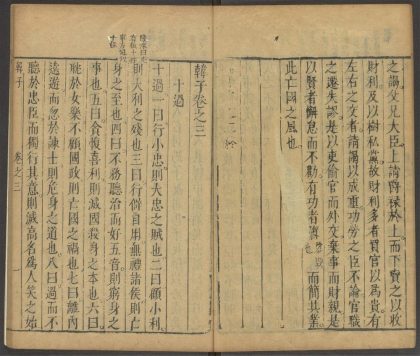 之議交見大臣上請爵祿於上而下賣之以收
財利及以樹私黨故財利多者買官以為貴有
左右之交者請謁以成重功勞之臣不論官職
之遷失謬是以吏偷官而外交棄事而財親是
以賢者懈怠而不勸有功者隳而簡其業
此亡國之風也
韓子卷之三
十過
十過一曰行小忠則大忠之賊也二曰顧小利
則大利之殘也三曰行僻自用無禮諸侯則亡
身之至也四曰不務聽治而好五音則窮身之
事也五曰貪愎喜利則滅國殺身之本也六曰
耽於女樂不顧國政則亡國之禍也七曰離內
遠遊而忽於諫士則危身之道也八曰過而不
聽於忠臣而獨行其意則滅高名為人笑之始
韓子 卷之三